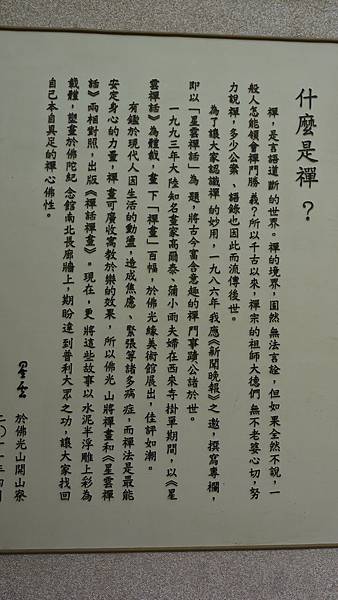 什麼是禪？
禪，是言語道斷的世界。禪的境界，固然無法言詮，但如果全然不說，一
般人怎能領會禪門勝義？所以千古以來，禪宗的祖師大德們無不老婆心切，努
力說禪，多少公案、語錄也因此而流傳後世。
為了讓大家認識禪的妙用，一九八六年我應《新聞晚報》之邀，撰寫專欄，
即以「星雲禪話」為題，將古今富含意趣的禪門事蹟公諸於世。
一九九三年大陸知名畫家高爾泰、蒲小雨夫婦在西來寺掛單期間，以《星
雲禪話》為體裁，畫下「禪畫」百幅，於佛光緣美術館展出，佳評如潮。
有鑑於現代人因生活的動盪，造成焦慮、緊張等諸多病症，而禪法是最能
安定身心的力量，禪畫可廣收寓教於樂的效果，所以佛光山將禪畫和《星雲禪
話》兩相對照，出版《禪話禪畫》。現在，更將這些故事以水泥半浮雕上彩為
載體，塑畫於佛陀紀念館南北長廊牆上，期盼達到普利大眾之功，讓大家找回
自己本自具足的禪心佛性。
星雲
於佛光山開山寮
二〇一一年四月